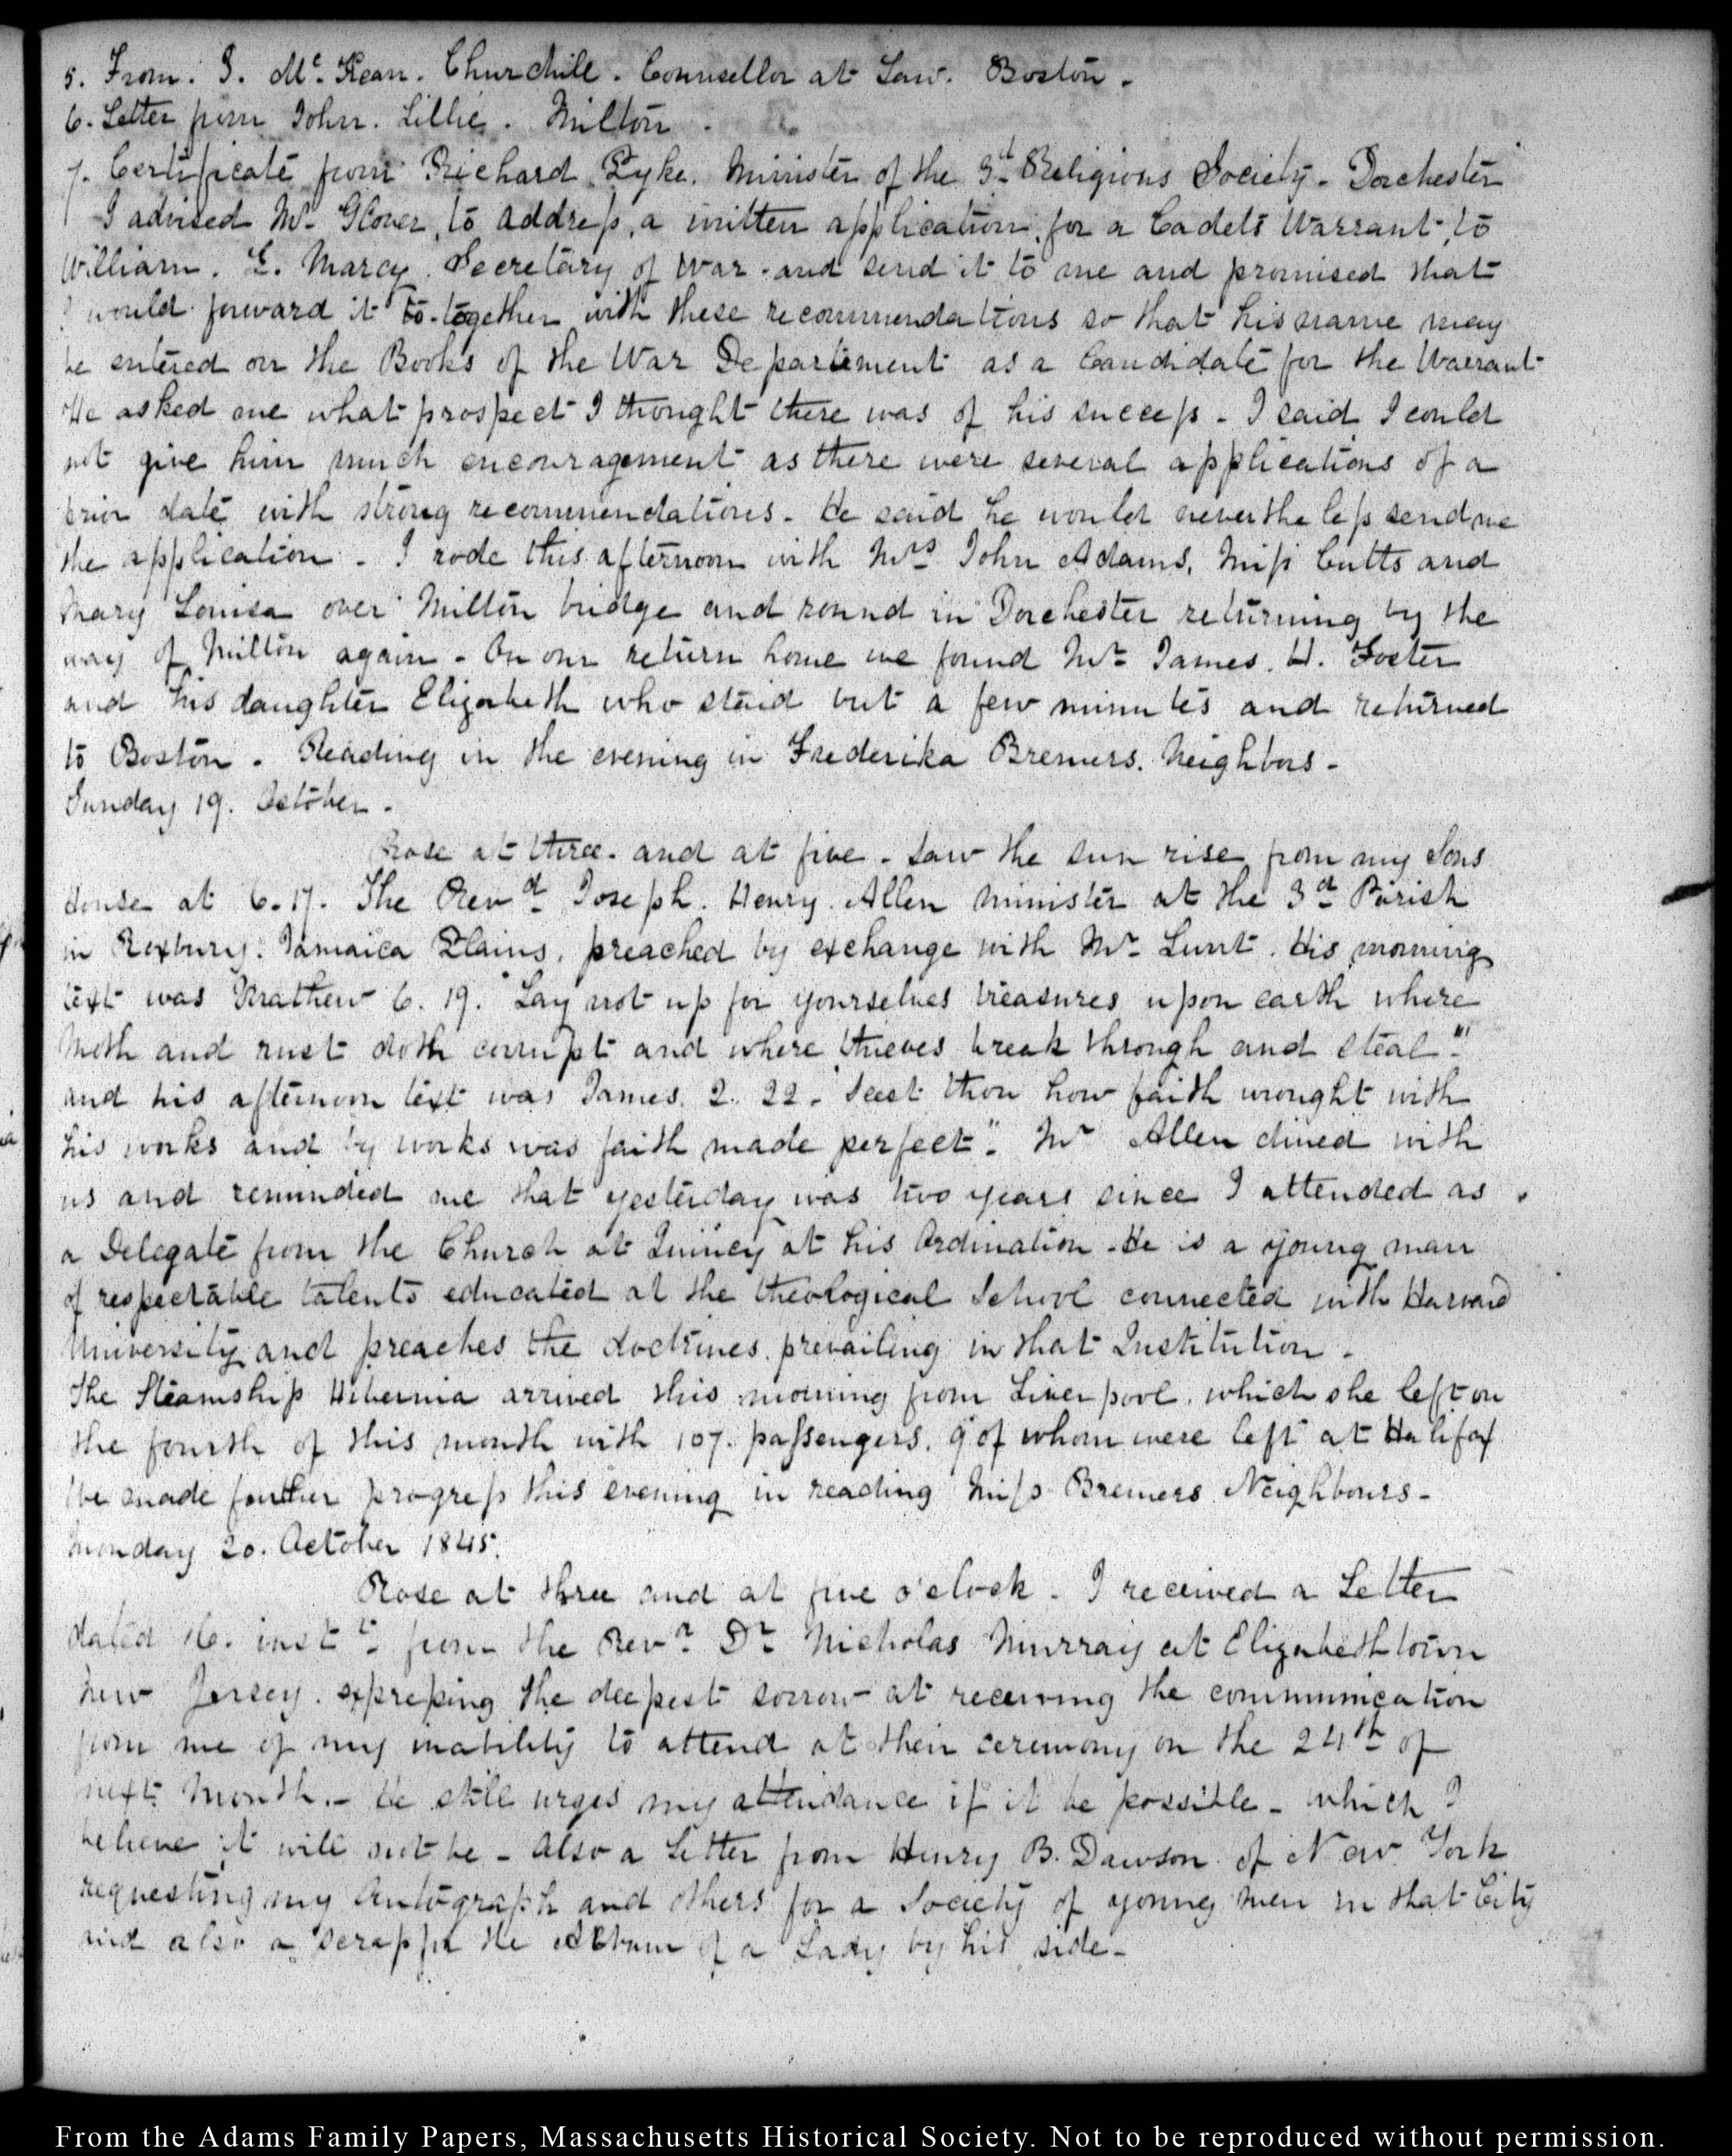 5. From. J. Mc. Kean. Churchill. Counsellor at Law. Boston -
6. Letter from John. Lillie. Milton.
7. Certificate from Richard Pyke. Minister of the 3d. Religious Society - Dorchester
I advised Mr. Glover, to address, a written application, for a Cadets Warrant, to
William. L. Marcy. Secretary of War - and send it to me and promised that
I would forward it to together with these recommendations so that his name may
be entered on the Books of the War Department as a Candidate for the Warrant
He asked me what prospect I thought there was of his success - I said I could
not give him much encouragement as there were several applications of a
prior date with strong recommendations. He said he would nevertheless send me
the application - I rode this afternoon with Mrs. John Adams, Miss Cutts and
Mary Louisa over Milton bridge and round in Dorchester returning by the
way of Milton again - On our return home we found Mr. James. H. Foster
and his daughter Elizabeth who staid but a few minutes and returned
to Boston. Reading in the evening in Frederika Bremers. Neighbors -
Sunday 19. October.
Rose at three - and at five - Saw the sun rise from my Sons
House at 6.17. The Revd. Joseph. Henry. Allen minister at the 3d. Parish
in Roxbury. Jamaica Plains, preached by exchange with Mr. Lunt. His morning
text was Mathew 6. 19. "Lay not up for yourselves treasures upon earth where
Moth and rust doth corrupt and where thieves break through and steal"
and his afternoon text was James. 2. 22. "Seest thou how faith wrought with
his works and by works was faith made perfect". Mr. Allen dined with
us and reminded me that yesterday was two years since I attended as
a Delegate from the Church at Quincy at his Ordination - He is a young man
of respectable talents educated at the theological School connected with Harvard
University and preaches the doctrines prevailing in that Institution -
The Steamship Hibernia arrived this morning from Liverpool. which she left on
the fourth of this month with 107. passengers. 9 of whom were left at Halifax
We made further progress this evening in reading Miss Bremers Neighbours -
Monday 20. October 1845.
Rose at three and at five o'clock - I received a Letter
dated 16. instt. from the Revd. Dr. Nicholas Murray at Elizabethtown
New Jersey. expressing the deepest sorrow at receiving the communication
from me of my inability to attend at their ceremony on the 24th of
next Month. - He still urges my attendance if it be possible - which I
believe it will not be - Also a Letter from Henry B. Dawson of New York
requesting my Autograph and others for a Society of young men in that City
and also a scrap for the Album of a Lady by his side -
From the Adams Family Papers, Massachusetts Historical Society. Not to be reproduced without permission.